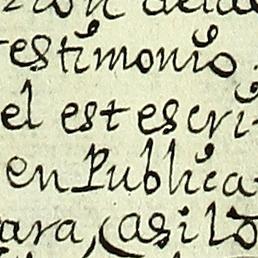 testimonio
el est escri
en Publica
ara, casi lo